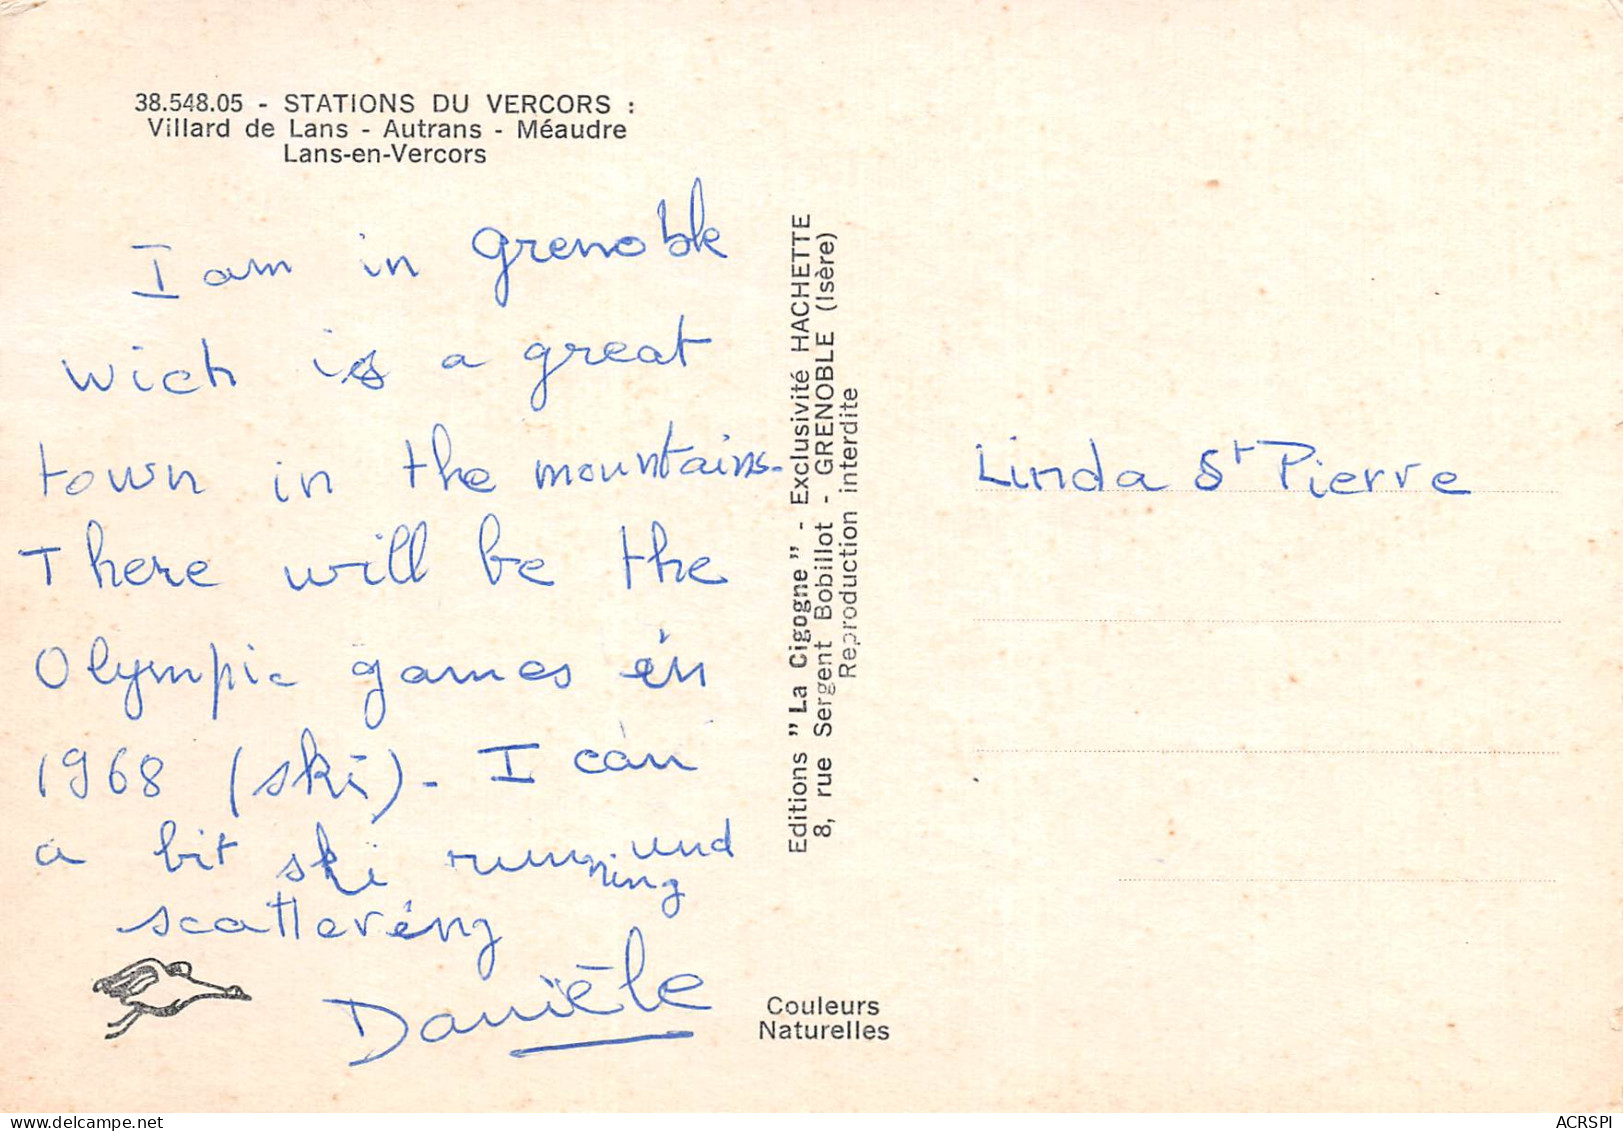 38.548.05 - STATIONS DU VERCORS :
Villard de Lans - Autrans - Méaudre
Lans-en-Vercors
I am in grenoble
wich is a great
town in the mountains.
There will be the
Olympic games in
1968 (ski). I can
a bit ski running und
scattering
Danièle
Editions "La Cigogne" - Exclusivité HACHETTE
8, rue Sergent Bobillot - GRENOBLE (Isère)
Reproduction interdite
Couleurs
Naturelles
Linda St Pierre
ACRSPI